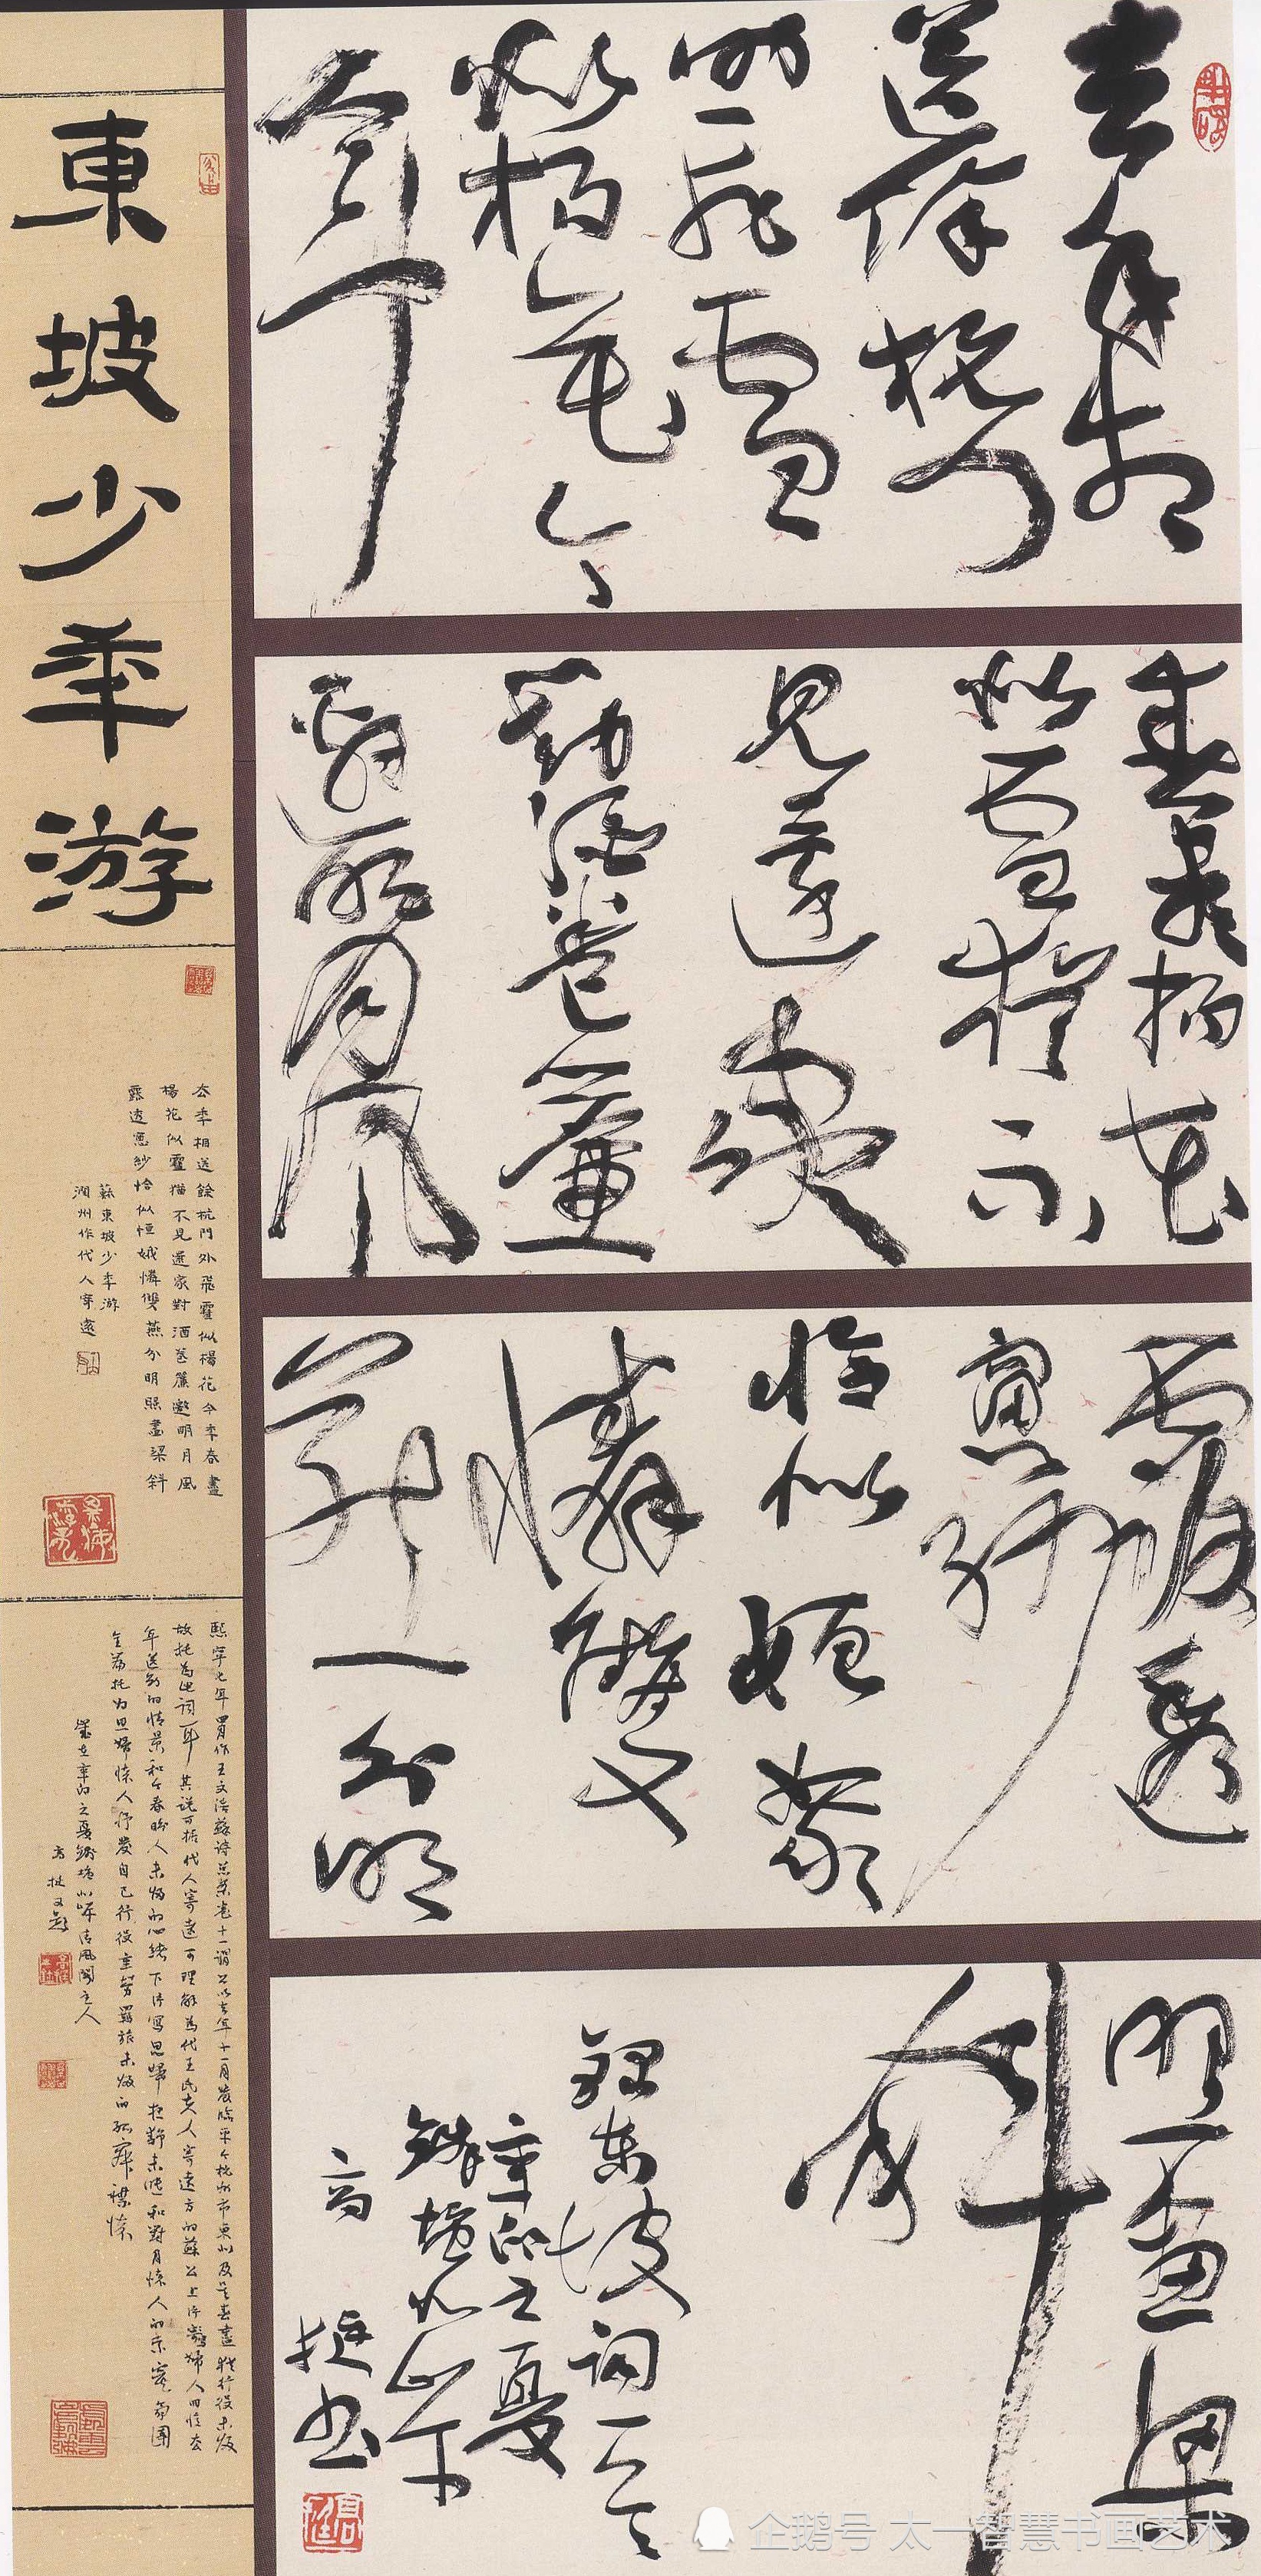 去年相
送餘杭門
外飛雪
似楊花今
年
春盡楊花
似雪猶不
見還家
對酒卷簾
邀明月風
露透
窗紗
恰似姮娥
憐雙
燕分明
照畫梁
斜
錄東坡詞一首
辛卯之夏
錢塘北山下
高捷書
東坡少年游
去年相送餘杭門外飛雪似楊花今年春盡
楊花似雪猶不見還家對酒卷簾邀明月風
露透窗紗恰似姮娥憐雙燕分明照畫梁斜
蘇東坡少年游
潤州作代人寄遠
熙寧七年四月作王文誥蘇詩總案卷十一謂公以去年十一月發臨平今杭州市東北及是春盡猶行役未歸
故托為此詞耳其說可據代人寄遠可理解為代王氏夫人寄遠方的蘇公上片寫婦人回憶去
年送別的情景和今春盼人未歸的心緒下片寫思婦夜靜未眠和對月懷人的寂寞
全篇托為思婦懷人抒發自己行役羈旅未歸的孤寂襟懷
歲在辛卯之夏錢塘北岸清風閣主人
高捷又題
企鹅号 太一智慧书画艺术